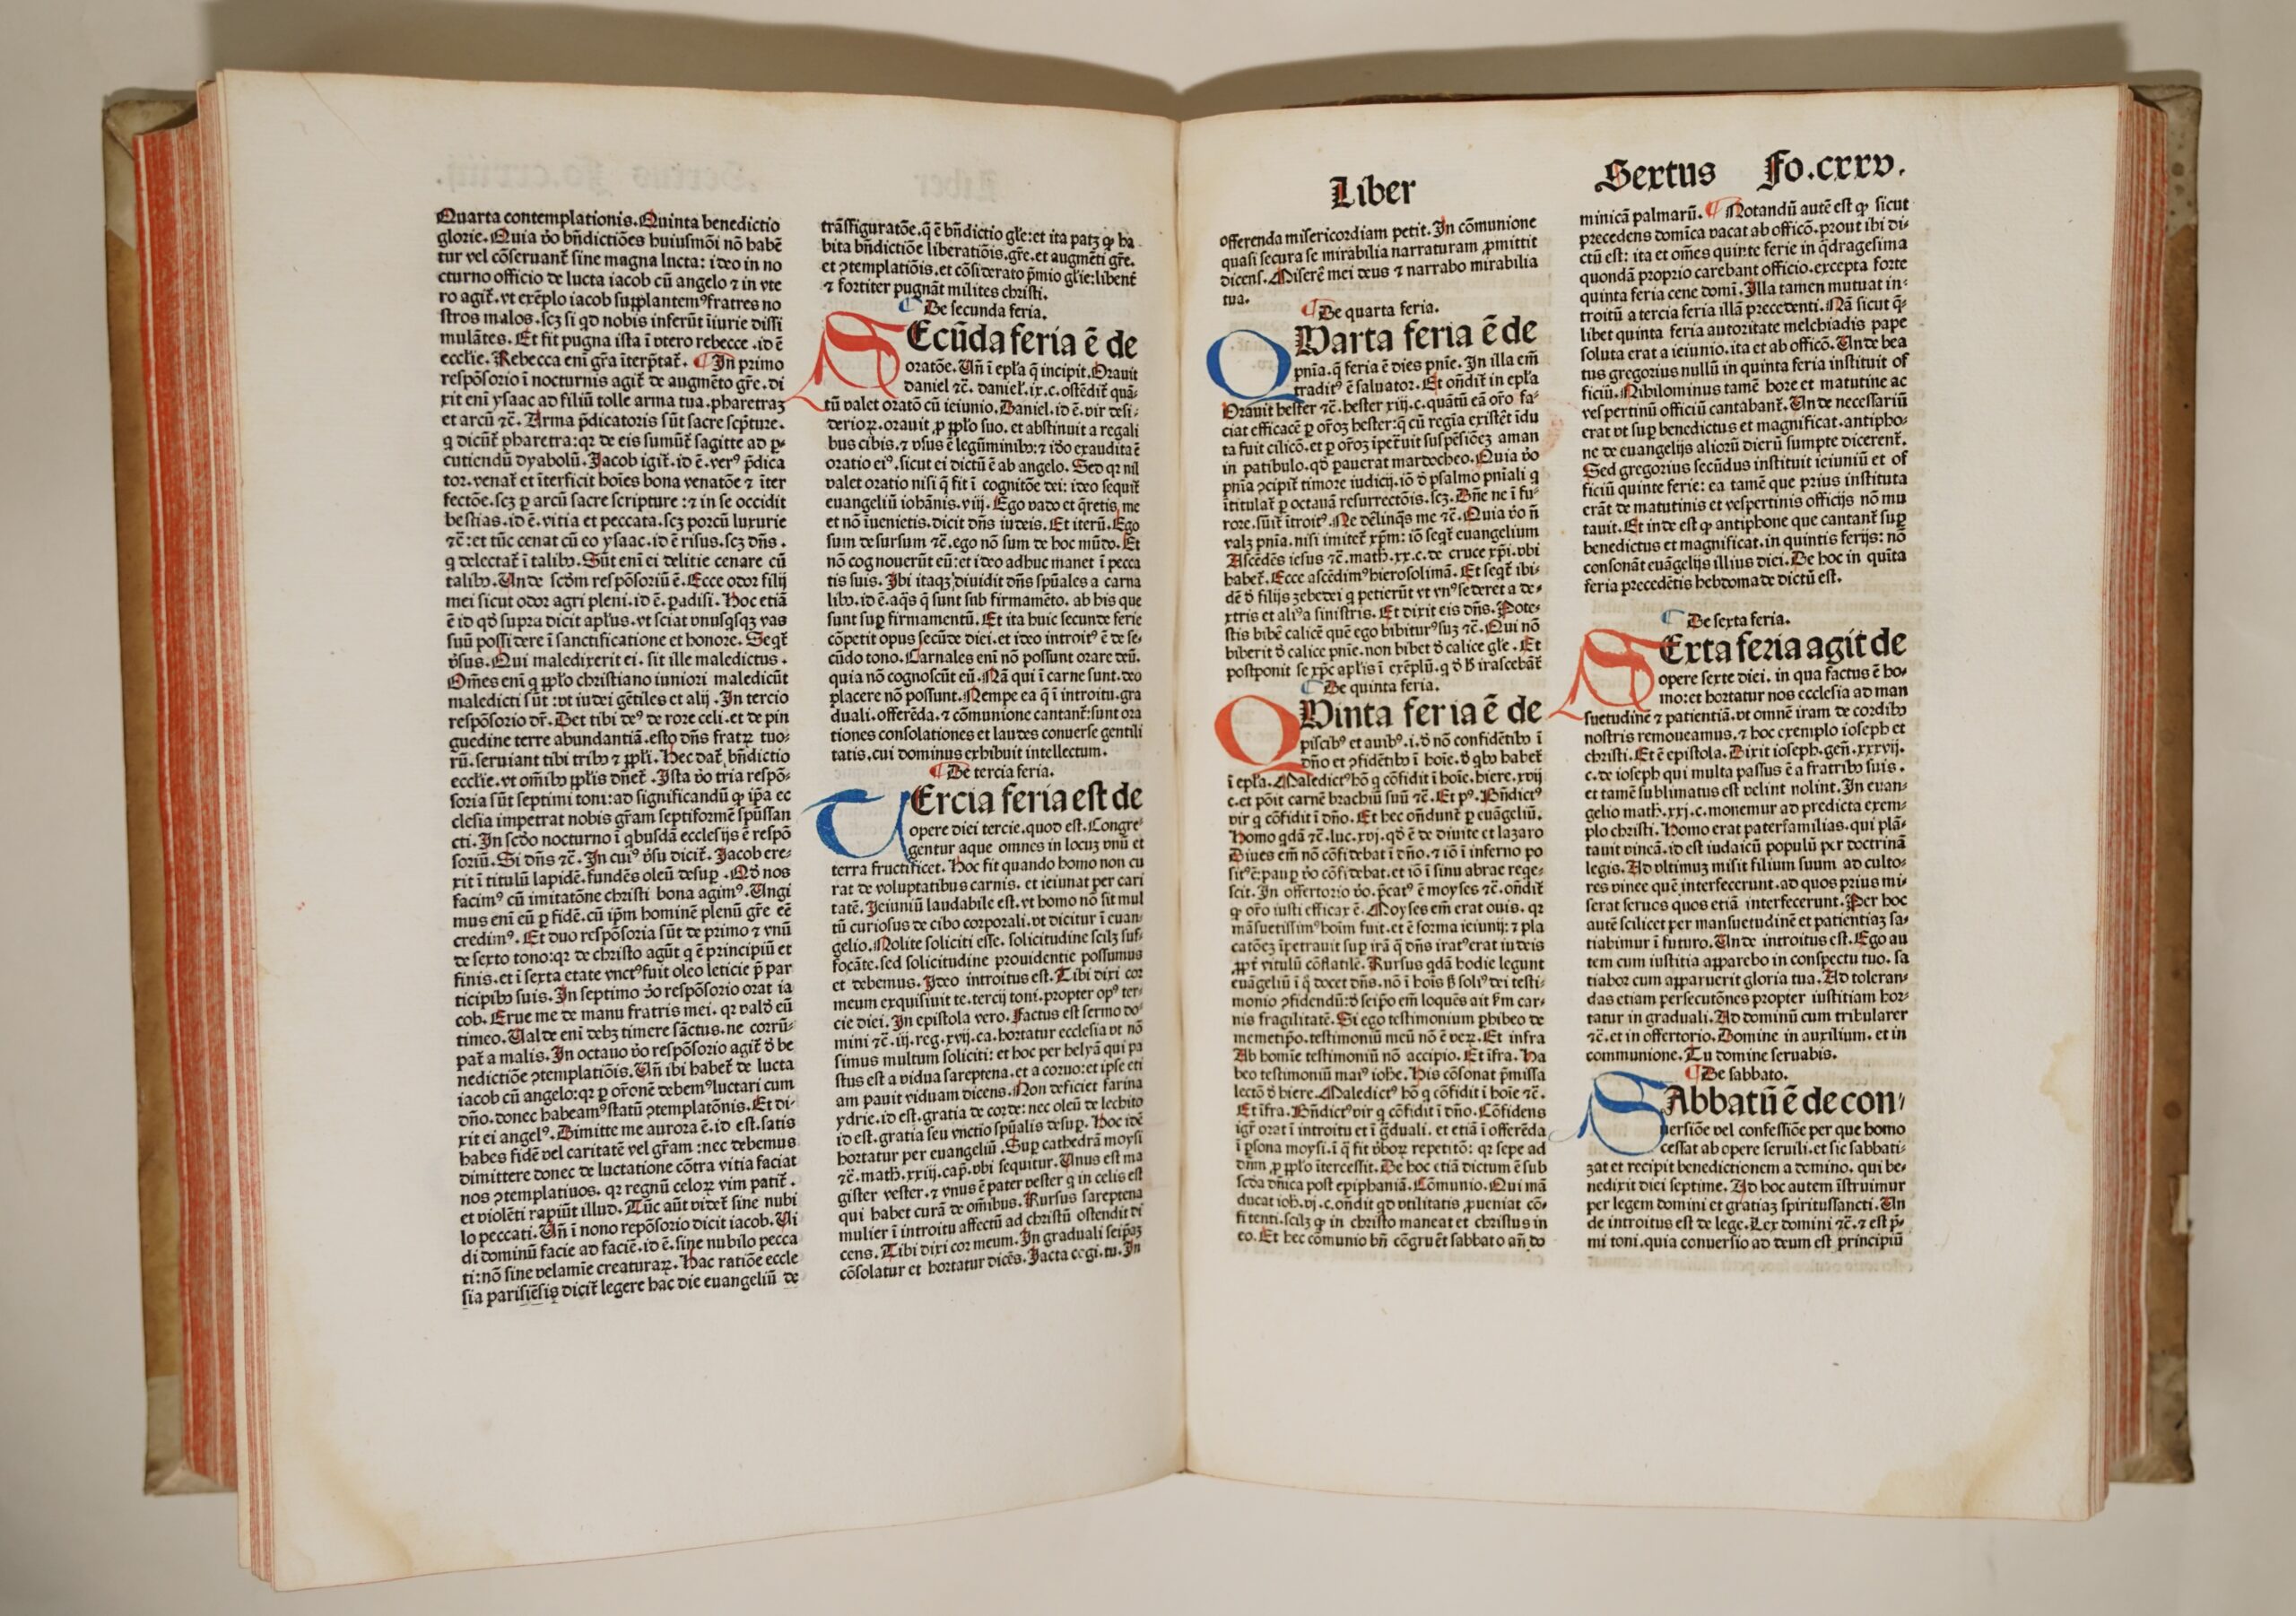 Quarta contemplationis. Quinta benedictio
glorie. Quia v̾o bn̄dictiões huiusmõi nõ habẽ
tur vel cõseruant᷑ sine magna lucta: ideo in no
cturno officio de lucta iacob cū angelo ⁊ in vte
ro agit᷑. vt exẽplo iacob supplantemꝰ fratres no
stros malos. scꝫ si qđ nobis inferūt iniurie dissi
mulãtes. Et fit pugna ista ĩ vtero rebecce .id ẽ
ecclie. Rebecca eni gr̄a ĩterp̄tat᷑. ¶ In primo
respõsorio ĩ nocturnis agit᷑ de augmẽto gr̄e. di
xit eni ysaac ad filiū tolle arma tua. pharetraꝫ
et arcū ⁊c̄. Arma p̄dicatoris sūt sacre scp̄ture.
q dicūt᷑ pharetra: qꝛ de eis sumūt᷑ sagitte ad ꝑ
cutiendū dyabolū. Jacob igit᷑. id ẽ. verꝰ p̄dica
tor. venat᷑ et ĩterficit hoĩes bona venatõe ⁊ ĩter
fectõe. scꝫ ꝑ arcū sacre scripture: ⁊ in se occidit
bestias. id ẽ. vitia et peccata. scꝫ porcū luxurie
⁊c̄: et tūc cenat cū eo ysaac. id ẽ risus. scꝫ dn̄s.
q delectat᷑ ĩ talibꝰ. Sūt eni ei delitie cenare cū
talibꝰ. Unde scd̄m respõsoriū ẽ. Ecce odor filij
mei sicut odor agri pleni. id ẽ. ꝑadisi. Hoc etiã
ẽ id qđ supra dicit apl̄us. vt sciat vnusqsqꝫ vas
suū possidere ĩ sanctificatione et honore. Seqt᷑
v̾sus. Qui maledixerit ei. sit ille maledictus.
Om̄es eni q ppl̄o christiano iuniori maledicūt
maledicti sūt: vt iudei gẽtiles et alij. In tercio
respõsorio dr̄. Det tibi deꝰ de rore celi. et de pin
guedine terre abundantiã. esto dn̄s fratꝝ tuo-
rū. seruiant tibi tribꝰ ⁊ ppl̄i. Hec dat᷑ bn̄dictio
ecclie. vt om̄ibꝰ ppl̄is dn̄et᷑. Ista v̾o tria respõ-
soria sūt septimi toni: ad significandū ꝙ ip̄a ec
clesia impetrat nobis gr̄am septiformẽ sp̄ussan
cti. In scd̄o nocturno ĩ qbusdã ecclesijs ẽ respõ
soriū. Si dn̄s ⁊c̄. In cuiꝰ v̾su dicit᷑. Jacob ere-
xit ĩ titulū lapidẽ. fundẽs oleū desuꝑ. Qđ nos
facimꝰ cū imitatõne christi bona agimꝰ. Ungi
mus eni cū ꝑ fidẽ. cū ip̄m hominẽ plenū gr̄e eẽ
credimꝰ. Et duo respõsoria sūt de primo ⁊ vnū
de sexto tono: qꝛ de christo agūt q ẽ principiū et
finis. et ĩ sexta etate vnctꝰ fuit oleo leticie p̄ par
ticipibꝰ suis. In septimo v̾o respõsorio orat ia
cob. Erue me de manu fratris mei. qꝛ valđ eū
timeo. Valde eni debꝫ timere sãctus. ne corrū-
pat᷑ a malis. In octauo v̾o respõsorio agit᷑ đ be
nedictiõe ꝯtemplatiõis. Un̄ ibi habet᷑ de lucta
iacob cū angelo: qꝛ ꝑ or̄onẽ debemꝰ luctari cum
dn̄o. donec habeamꝰ statū ꝯtemplatõnis. Et di-
xit ei angelꝰ. Dimitte me aurora ẽ. id est. satis
habes fidẽ vel caritatẽ vel gr̄am: nec debemus
dimittere donec de luctatione cõtra vitia faciat
nos ꝯtemplatiuos. qꝛ regnū celoꝝ vim patit᷑.
et violẽti rapiūt illud. Tūc aūt videt᷑ sine nubi
lo peccati. Un̄ ĩ nono repõsorio dicit iacob. Ui
di dominū facie ad faciẽ. id ẽ. sine nubilo pecca
ti: nõ sine velamie creaturaꝝ. Hac ratiõe eccle
sia parisiẽsis dicit᷑ legere hac die euangeliū de
trãsfiguratõe. q ẽ bn̄dictio gl̄e: et ita patꝫ ꝙ ha
bita bn̄dictiõe liberatiõis. gr̄e. et augmẽti gr̄e.
et ꝯtemplatiõis. et cõsiderato p̄mio gl̄ie: libent᷑
⁊ fortiter pugnãt milites christi.
¶ De secunda feria.
SEcūda feria ẽ de
oratõe. Un̄ ĩ epl̄a q incipit. Orauit
daniel ⁊c̄. daniel. ix. c. ostẽdit᷑ quã-
tū valet oratõ cū ieiunio. Daniel. id ẽ. vir desi-
derioꝝ. orauit ꝓ ppl̄o suo. et abstinuit a regali
bus cibis. ⁊ vsus ẽ legūminibꝰ: ⁊ iđo exaudita ẽ
oratio eiꝰ. sicut ei dictū ẽ ab angelo. Sed qꝛ nil
valet oratio nisi q fit ĩ cognitõe dei: ideo sequit᷑
euangeliū iohãnis. viij. Ego vado et q̄retis me
et nõ ĩuenietis. dicit dn̄s iudeis. Et iterū. Ego
sum desursum ⁊c̄. ego nõ sum de hoc mūdo. Et
nõ cognouerūt eū: et ideo adhuc manet ĩ pecca
tis suis. Ibi itaqꝫ diuidit dn̄s sp̄uales a carna
libꝰ. id ẽ. aq̄s q̄ sunt sub firmamẽto. ab his que
sunt suꝑ firmamentū. Et ita huic secunde ferie
cõpetit opus secūde diei. et ideo introitꝰ ẽ de se-
cūdo tono. Carnales eni nõ possunt orare deū.
quia nõ cognoscūt eū. Nã qui ĩ carne sunt. deo
placere nõ possunt. Nempe ea q̄ ĩ introitu. gra
duali. offerẽda. ⁊ cõmunione cantant᷑: sunt ora
tiones consolationes et laudes conuerse gentili
tatis. cui dominus exhibuit intellectum.
¶ De tercia feria.
TErcia feria est de
opere diei tercie. quod est. Congre-
gentur aque omnes in locuꝫ vnū et
terra fructificet. Hoc fit quando homo non cu
rat de voluptatibus carnis. et ieiunat per cari
tatẽ. Jeiuniū laudabile est. vt homo nõ sit mul
tū curiosus de cibo corporali. vt dicitur ĩ euan-
gelio. Nolite soliciti esse. solicitudine scilꝫ suf-
focãte. sed solicitudine prouidentie possumus
et debemus. Ideo introitus est. Tibi dixi cor
meum exquisiuit te. tercij toni. propter opꝰ ter-
cie diei. In epistola vero. Factus est sermo do-
mini ⁊c̄. iij. reg. xvij. ca. hortatur ecclesia vt nõ
simus multum soliciti: et hoc per helyã qui pa
stus est a vidua sareptena. et a coruo: et ipse eti
am pauit viduam dicens. Non deficiet farina
ydrie. id est. gratia de corde: nec oleū de lechito
id est. gratia seu vnctio sp̄ualis desuꝑ. Hoc idẽ
hortatur per euangeliū. Suꝑ cathedrã moysi
⁊c̄. math. xxiij. cap. vbi sequitur. Unus est ma
gister vester. ⁊ vnus ẽ pater vester q̄ in celis est
qui habet curã de om̄ibus. Rursus sareptena
mulier ĩ introitu affectū ad christū ostendit di
cens. Tibi dixi cor meum. In graduali seip̄aꝫ
cõsolatur et hortatur dicẽs. Jacta cogi. tu. In
Liber Sextus Fo.cxxv.
offerenda misericordiam petit. In cõmunione
quasi secura se mirabilia narraturam ꝓmittit
dicens. Miserẽ mei deus ⁊ narrabo mirabilia
tua.
¶ De quarta feria.
QUarta feria ẽ de
pn̄ia. q̄ feria ẽ dies pn̄ie. In illa em̄
traditꝰ ẽ saluator. Et on̄dit᷑ in epl̄a
Orauit hester ⁊c̄. hester xiij. c. quãtū eã or̄o fa-
ciat efficacẽ ꝑ or̄oꝫ hester: q̄ cū regia existẽt ĩdu
ta fuit cilicõ. et ꝑ or̄oꝫ ĩpet᷑uit suspẽsiõeꝫ aman
in patibulo. qđ ꝑauerat mardocheo. Quia v̾o
pn̄ia ꝯcipit᷑ timore iudicij. iõ đ psalmo pn̄iali q
ĩtitulat᷑ ꝑ octauã resurrectõis. scꝫ. Dn̄e ne ĩ fu-
rore. sūit᷑ ĩtroitꝰ. Ne dẽlinq̄s me ⁊c̄. Quia v̾o n̄
valꝫ pn̄ia. nisi imitet᷑ xp̄m: iõ seqt᷑ euangelium
Ascẽdẽs iesus ⁊c̄. math. xx. c. de cruce xp̄i. vbi
habet᷑. Ecce ascẽdimꝰ hierosolimã. Et seqt᷑ ibi-
dẽ đ filijs zebedei q petierūt vt vnꝰ sederet a de-
xtris et aliꝰ a sinistris. Et dixit eis dn̄s. Pote-
stis bibẽ calicẽ quẽ ego bibiturꝰ suꝫ ⁊c̄. Qui nõ
biberit đ calice pn̄ie. non bibet đ calice gl̄e. Et
postponit se xp̄c apl̄is ĩ exẽplū. q đ ħ irascebãt᷑
¶ De quinta feria.
QUinta feria ẽ de
piscibꝰ et auibꝰ. i. đ nõ confidẽtibꝰ ĩ
dn̄o et ꝯfidẽtibꝰ ĩ hoĩe. đ qbꝰ habet᷑
ĩ epl̄a. Maledictꝰ hõ q cõfidit ĩ hoĩe. hiere. xvij
c. et põit carnẽ brachiū suū ⁊c̄. Et pꝰ. Bn̄dictꝰ
vir q cõfidit ĩ dn̄o. Et hec on̄dunt᷑ ꝑ euãgeliū.
Homo qdã ⁊c̄. luc. xvj. qđ ẽ de diuite et lazaro
Diues em̄ nõ cõfidebat ĩ dn̄o. ⁊ iõ ĩ inferno po
sitꝰ ẽ: pauꝑ v̾o cõfidebat. et iõ ĩ sinu abrae reqe-
scit. In offertorio v̾o. p̄catꝰ ẽ moyses ⁊c̄. on̄dit᷑
ꝙ or̄o iusti efficax ẽ. Moyses em̄ erat ouis. qꝛ
mãsuetissimꝰ hoĩm fuit. et ẽ forma ieiunij: ⁊ pla
catõeꝫ ĩpetrauit suꝑ irã q̄ dn̄s iratꝰ erat iudeis
ꝓpt᷑ vitulū cõflatilẽ. Rursus qdã hodie legunt
euãgeliū ĩ q̄ docet dn̄s. nõ ĩ hoĩs ħ soliꝰ dei testi-
monio ꝯfidendū: đ seip̄o em̄ loquẽs ait ẜm car-
nis fragilitatẽ. Si ego testimonium ꝑhibeo de
memetip̄o. testimoniū meū nõ ẽ veꝝ. Et infra
Ab homĩe testimoniū nõ accipio. Et ĩfra. Ha
beo testimoniū maiꝰ iohe. His cõsonat p̄missa
lectõ đ hiere. Maledictꝰ hõ q cõfidit ĩ hoĩe ⁊c̄.
Et ĩfra. Bn̄dictꝰ vir q cõfidit ĩ dn̄o. Cõfidens
igr̄ orat ĩ introitu et ĩ g̃duali. et etiã ĩ offerẽda
ĩ ꝑsona moysi. ĩ q̄ fit v̾boꝝ repetitõ: qꝛ sepe ad
dn̄m ꝓ ppl̄o ĩtercessit. De hoc etiã dictum ẽ sub
scđa dn̄ica post epiphaniã. Cõmunio. Qui mã
ducat ioh. vj. c. on̄dit qđ vtilitatis ꝓueniat cõ-
fitenti. scilꝫ ꝙ in christo maneat et christus in
eo. Et hec cõmunio bn̄ cõgruẽt sabbato an̄ do
minicã palmarū. ¶ Notandū autẽ est ꝙ sicut
precedens domĩca vacat ab officõ. prout ibi di-
ctū est: ita et om̄es quinte ferie in q̄dragesima
quondã proprio carebant officio. excepta forte
quinta feria cene domĩ. Illa tamen mutuat in-
troitū a tercia feria illã precedenti. Nã sicut q̄-
libet quinta feria autoritate melchiadis pape
soluta erat a ieiunio. ita et ab officõ. Unde bea
tus gregorius nullū in quinta feria instituit of
ficiū. Nihilominus tamẽ hore et matutine ac
vespertinū officiū cantabant᷑. Unde necessariū
erat vt suꝑ benedictus et magnificat. antipho-
ne de euangelijs aliorū dierū sumpte dicerent᷑.
Sed gregorius secūdus instituit ieiuniū et of
ficiū quinte ferie: ea tamẽ que prius instituta
erãt de matutinis et vespertinis officijs nõ mu
tauit. Et inde est ꝙ antiphone que cantant᷑ suꝑ
benedictus et magnificat. in quintis ferijs: nõ
consonãt euãgelijs illius diei. De hoc in quĩta
feria precedẽtis hebdomade dictū est.
¶ De sexta feria.
SExta feria agit de
opere sexte diei. in qua factus ẽ ho-
mo: et hortatur nos ecclesia ad man
suetudinẽ ⁊ patientiã. vt omnẽ iram de cordibꝰ
nostris remoueamus. ⁊ hoc exemplo ioseph et
christi. Et ẽ epistola. Dixit ioseph. gen̄. xxxvij.
c. de ioseph qui multa passus ẽ a fratribꝰ suis.
et tamẽ sublimatus est velint nolint. In euan-
gelio math. xxj. c. monemur ad predicta exem-
plo christi. Homo erat paterfamilias. qui plã-
tauit vineã. id est iudaicū populū per doctrinã
legis. Ad vltimuꝫ misit filium suum ad culto-
res vinee quẽ interfecerunt. ad quos prius mi-
serat seruos quos etiã interfecerunt. Per hoc
autẽ scilicet per mansuetudinẽ et patientiaꝫ sa-
tiabimur ĩ futuro. Unde introitus est. Ego au
tem cum iustitia apparebo in conspectu tuo. sa
tiabor cum apparuerit gloria tua. Ad toleran-
das etiam persecutõnes propter iustitiam hor-
tatur in graduali. Ad dominū cum tribularer
⁊c̄. et in offertorio. Domine in auxilium. et in
communione. Tu domine seruabis.
¶ De sabbato.
SAbbatū ẽ de con-
uersiõe vel confessiõe per que homo
cessat ab opere seruili. et sic sabbati-
zat et recipit benedictionem a domino. qui be-
nedixit diei septime. Ad hoc autem ĩstruimur
per legem domini et gratiaꝫ spiritussancti. Un
de introitus est de lege. Lex domini ⁊c̄. ⁊ est p̄-
mi toni. quia conuersio ad deum est principiū